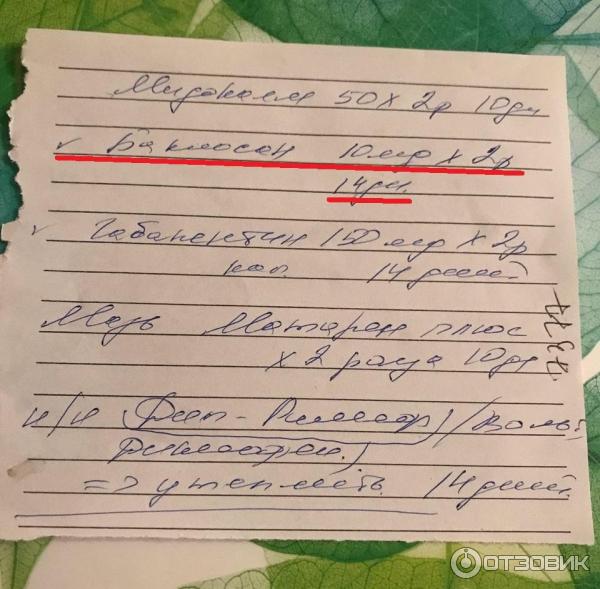 Мидокалм 50 х 2р 10дн
✓ Баклосан 10мг х 2р
14дн.
✓ Габапентин 150 мг х 2р
кап. 14 дней
Мазь Матарен плюс
х 2 раза 10дн
н/н (Деп-Рилиф)/Воль
Диклофен.)
=> утеплить 14 дней.
ОТЗОВИК